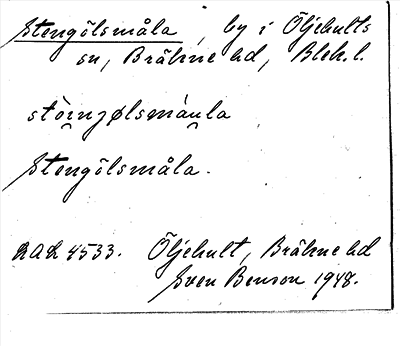 Stengölsmåla, by i Öljehults
sn, Bräkne hd, Blek. l.
stòi̯njølsmàu̯la
Stengölsmåla.
RAÄ 4533. Öljehult, Bräkne hd
Sven Benson 1948.